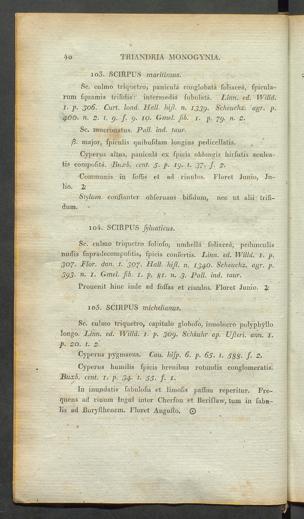 40 TRIANDRIA MONOGYNIA.
103. SCIRPUS maritimus.
Sc. culmo triquetro, panicula conglobata foliacea, spicula-
rum squamis trifidis: intermedia subulata. Linn. ed. Willd.
1. p. 306. Curt. lond. Hall. hist. n. 1339. Scheuchz. agr. p.
400. n. 2. t. 9. f. 9. 10. Gmel. sib. 1. p. 79. n. 2.
Sc. mucronatus. Pall. ind. taur.
β. major, spiculis quibusdam longius pedicellatis.
Cyperus altus, panicula ex spicis oblongis hirsutis aculea-
tis composita. Buxb. cent. 5. p. 19. t. 37. f. 2.
Communis in fossis et ad riuulos. Floret Junio, Ju-
lio. ♃
Stylum constanter obseruaui bifidum, nec ut alii trifi-
dum.
104. SCIRPUS syluaticus.
Sc. culmo triquetro folioso, umbella foliacea, pedunculis
nudis supradecompositis, spicis confertis. Linn. ed. Willd. 1. p.
307. Flor. dan. t. 307. Hall. hist. n. 1340. Scheuchz. agr. p.
393. n. 1. Gmel. sib. 1. p. 81. n. 3. Pall. ind. taur.
Prouenit hinc inde ad fossas et riuulos. Floret Junio. ♃
105. SCIRPUS michelianus.
Sc. culmo triquetro, capitulo globoso, inuolucro polyphyllo
longo. Linn. ed. Willd. 1. p. 309. Schkuhr ap. Usteri ann. 1.
p. 20. t. 2.
Cyperus pygmaeus. Cau. hisp. 6. p. 65. t. 588. f. 2.
Cyperus humilis spicis breuibus rotundis conglomeratis.
Buxb. cent. 1. p. 34. t. 55. f. 1.
In inundatis sabulosis et limosis passim reperitur. Fre-
quens ad riuum Ingul inter Cherson et Berislaw, tum in sabu-
lis ad Borysthenem. Floret Augusto. ☉